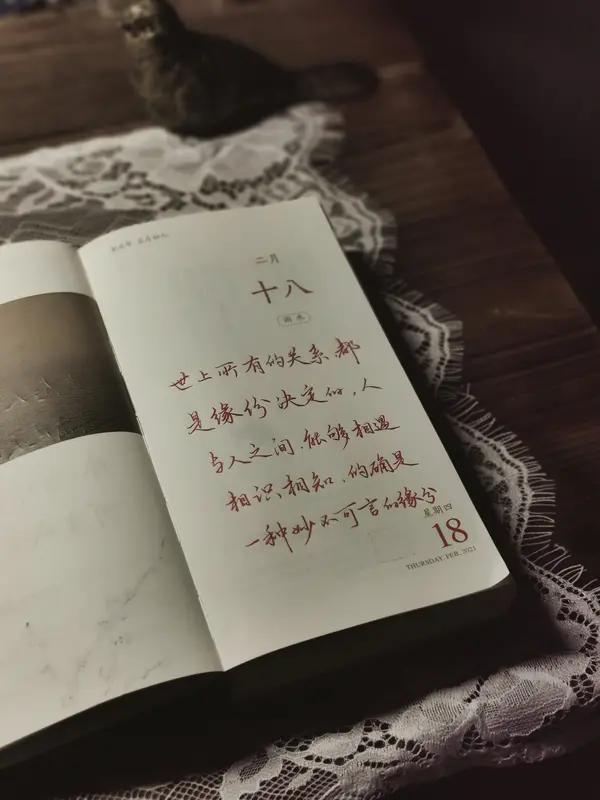 二月
十八
雨水
世上所有的关系,都
是缘份决定的,人
与人之间,能够相遇
相识,相知,的确是
一种妙不可言的缘兮
星期四
18
THURSDAY, FEB, 2021